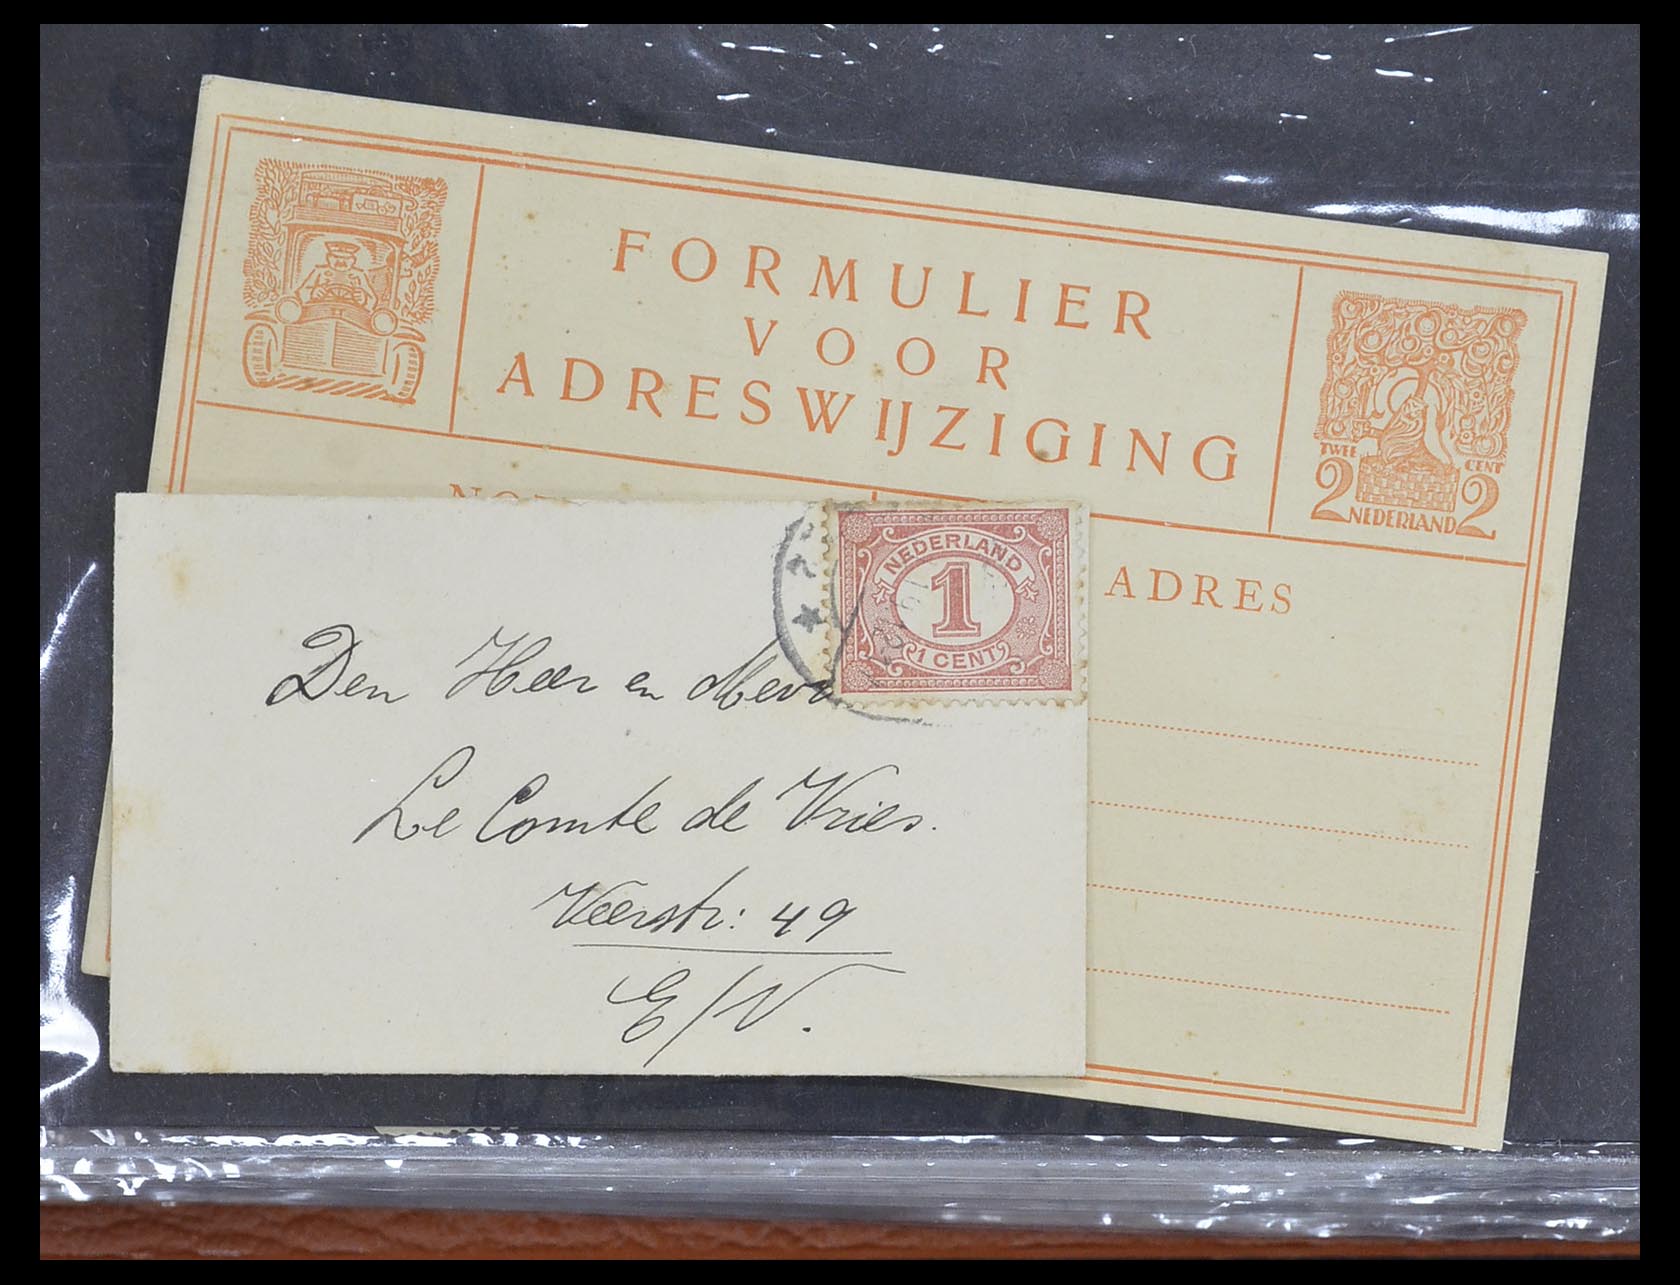 FORMULIER
VOOR
ADRESWIJZIGING
TWEE CENT
2 NEDERLAND 2
ADRES
NEDERLAND
1
1 CENT
Den Heer en Mevr
Le Comte de Vries.
Veerstr: 49
E/V.